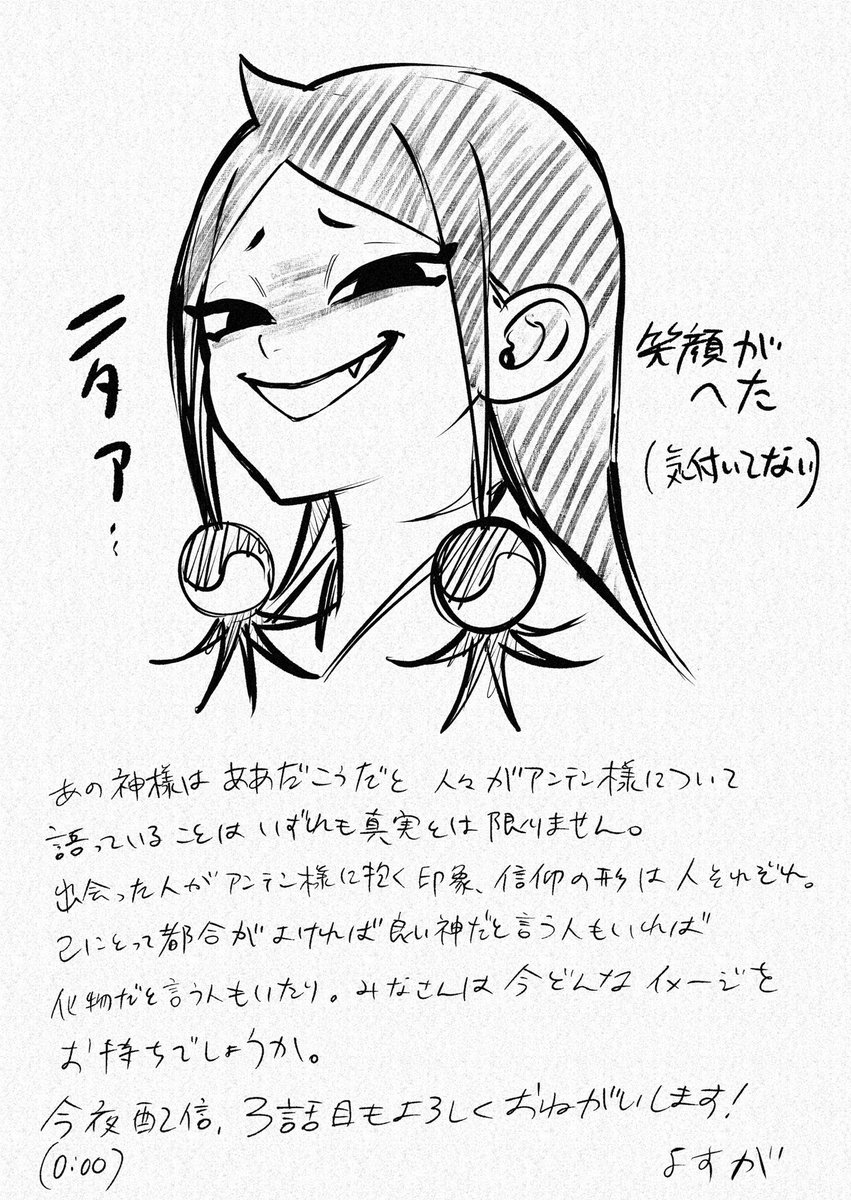 ニタア…
笑顔が
へた
(気付いてない)
あの神様は ああだこうだと 人々がアンテン様について
語っていることは いずれも真実とは限りません。
出会った人がアンテン様に抱く印象、信仰の形は人それぞれ。
己にとって都合がよければ良い神だと言う人もいれば
化物だと言う人もいたり。みなさんは今どんなイメージを
お持ちでしょうか。
今夜配信、3話目もよろしくおねがいします!
(0:00)
よすが